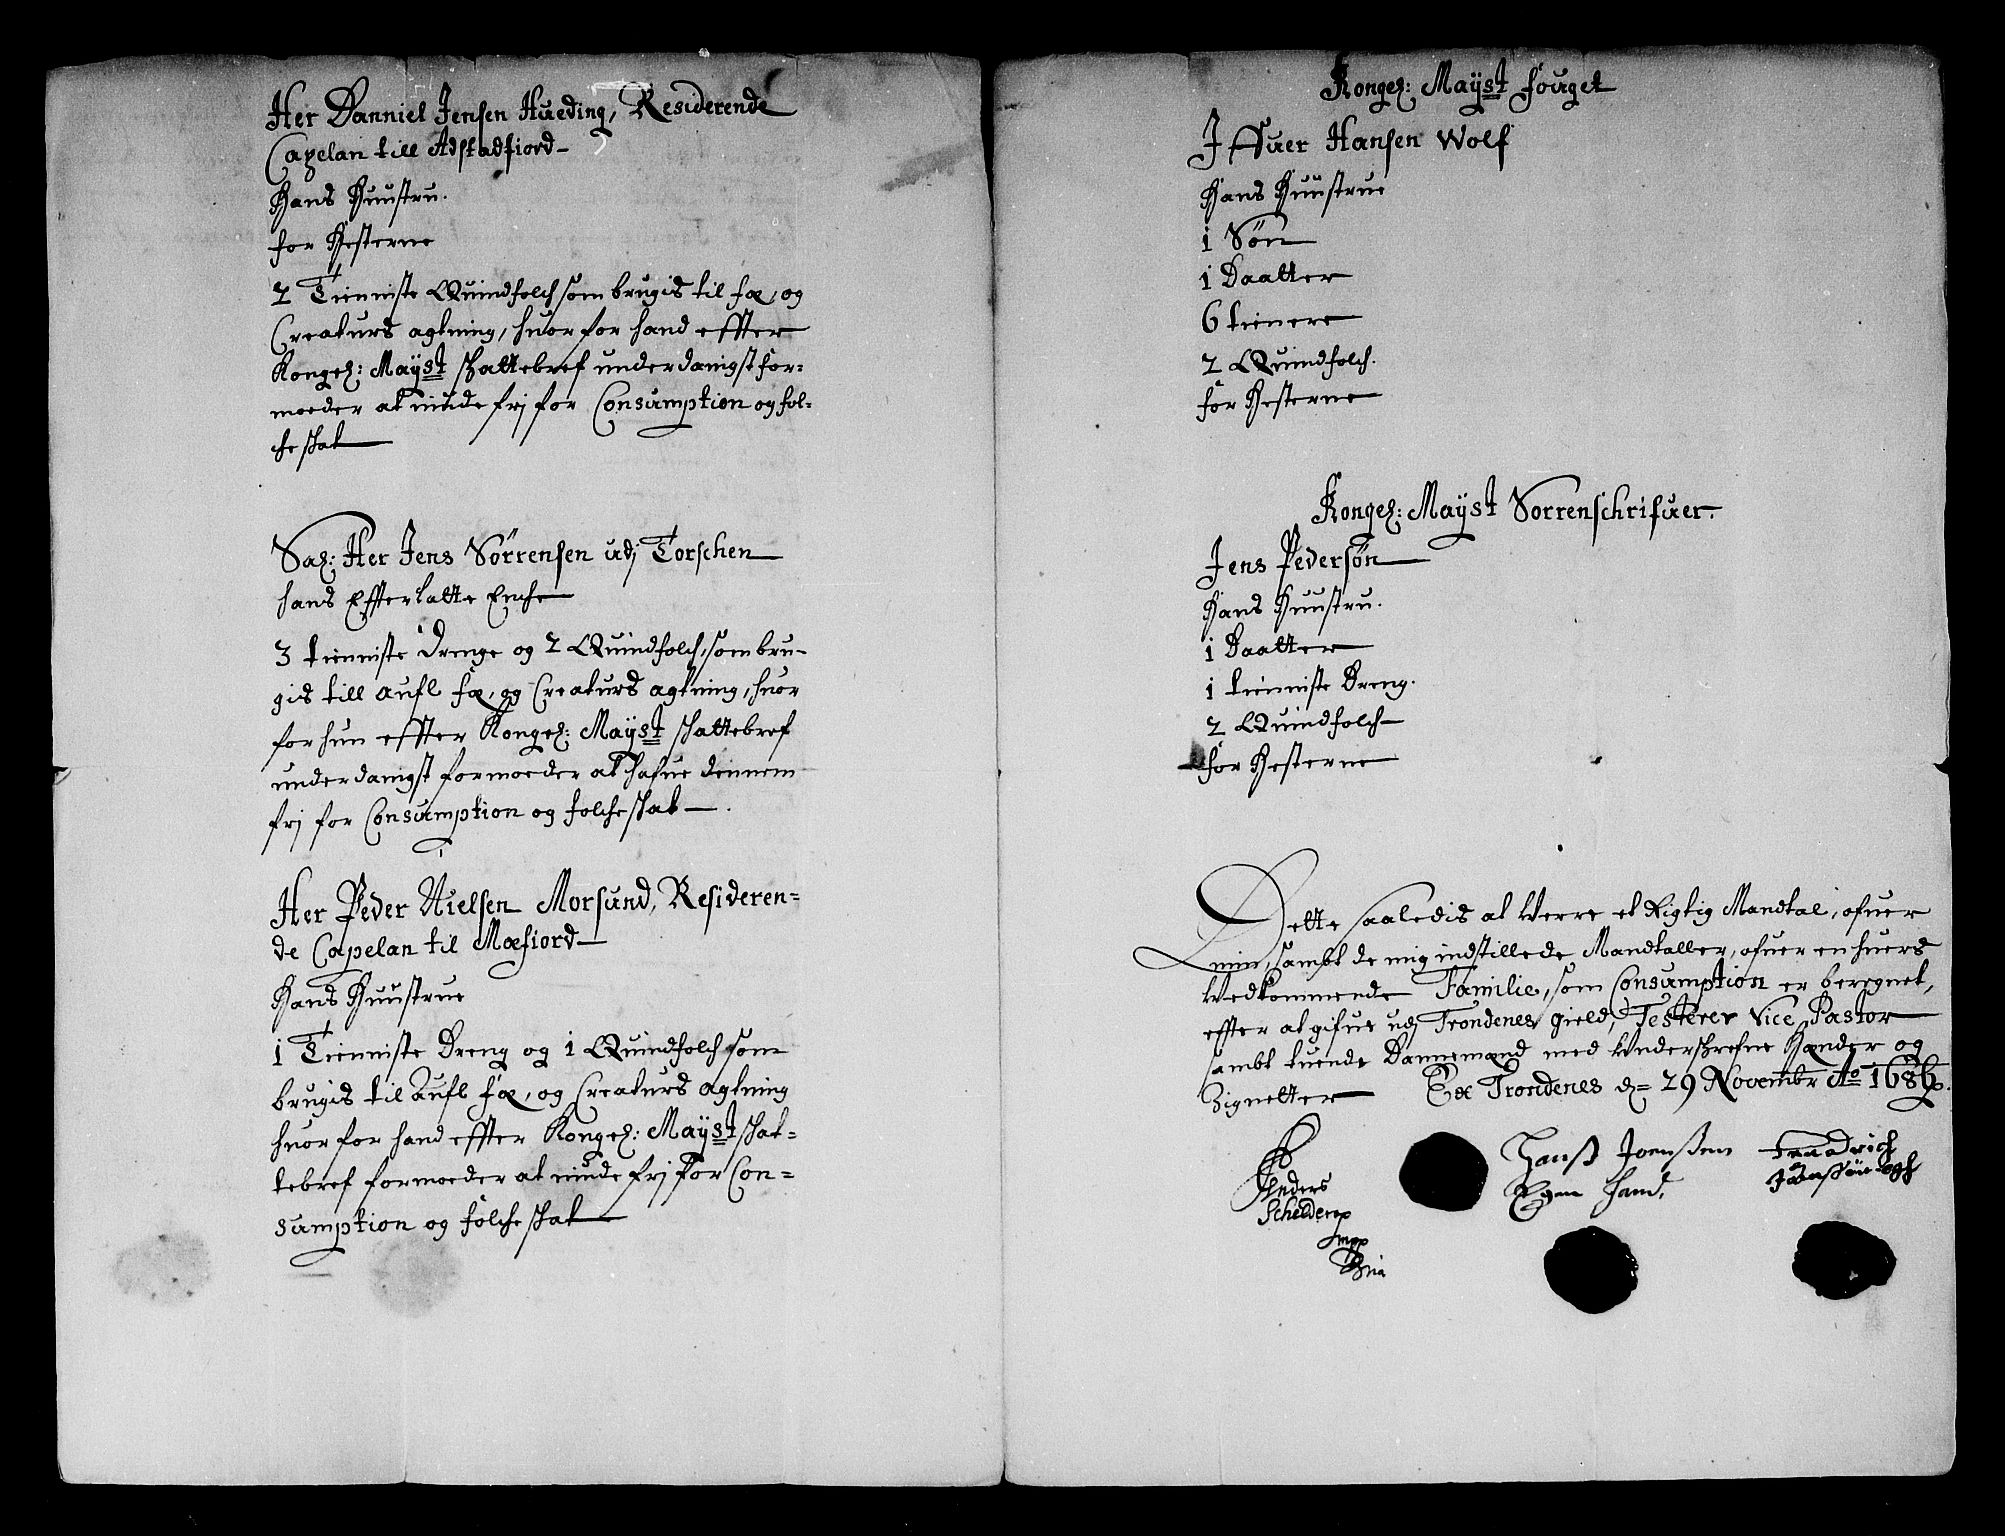 Her Danniel Jensen Hueding, Residerende
Capelan till Adstadfiord
Hans Huustru.
for Hesterne
2 Tienniste Quindfolch som brugis til fæ, og
Creaturs agtning, huor for hand effter
Kongel: Mayst skattebref underdanigst for-
moeder at niude frj for Consumption og fol-
che skat
Sal: Her Jens Sørrensen udj Torschen
hans Effterlatte Enche
3 tienniste Drenge og 2 Quindfolch, som bru-
gis till Aufl fæ, og Creaturs agtning, huor
for hun effter Kongel: Mayst skattebref
underdanigst formoeder at hafue dennem
frj for Consumption og folche skat
Her Peder Nielsen Morsund, Resideren-
de Capelan til Mæfiord
Hans Huustrue
1 Tienniste Dreng og 1 Quindfolch som
brugis til Aufl fæ, og Creaturs agtning
huor for hand effter Kongel: Mayst skat-
tebref formoeder at niude frj for Con-
sumption og folche skat
Kongel: Mayst fouget
Iffuer Hansen Wolf
Hans Huustrue
1 Søn
1 Daatter
6 tienere
2 Quindfolch.
for Hesterne
Kongel: Mayst Sorrenschrifuer.
Jens Pedersøn
Hans Huustru.
1 Daatter
1 tienniste Dreng.
2 Quindfolch
for Hesterne
Dette saaledis at Verre et Rigtig Mandtal, ofuer
min, sambt de mig indstillede Mandtaller, ofuer en huers
Vedkommende Familie, som Consumption er beregnet,
effter at gifue udj Trondenes gield, Testerer Vice Pastor
sambt tuende Dannemænd med Underskrefne Hænder og
Zignetter Ex Trondenes d= 29 Novembr Ao 1686.
Anders
Schelderup
mpp
Hanß Joenßen
Egen hand,